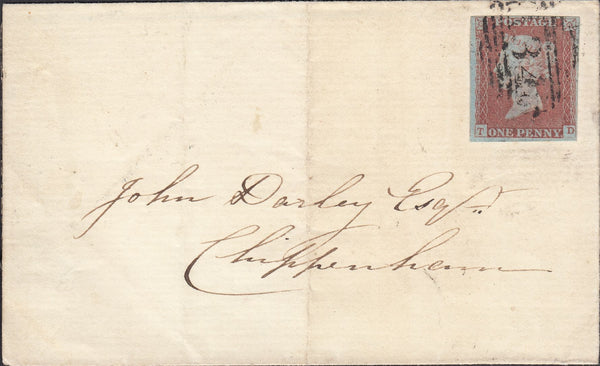 POSTAGE
ONE PENNY
T D
John Darley Esqr.
Chippenham